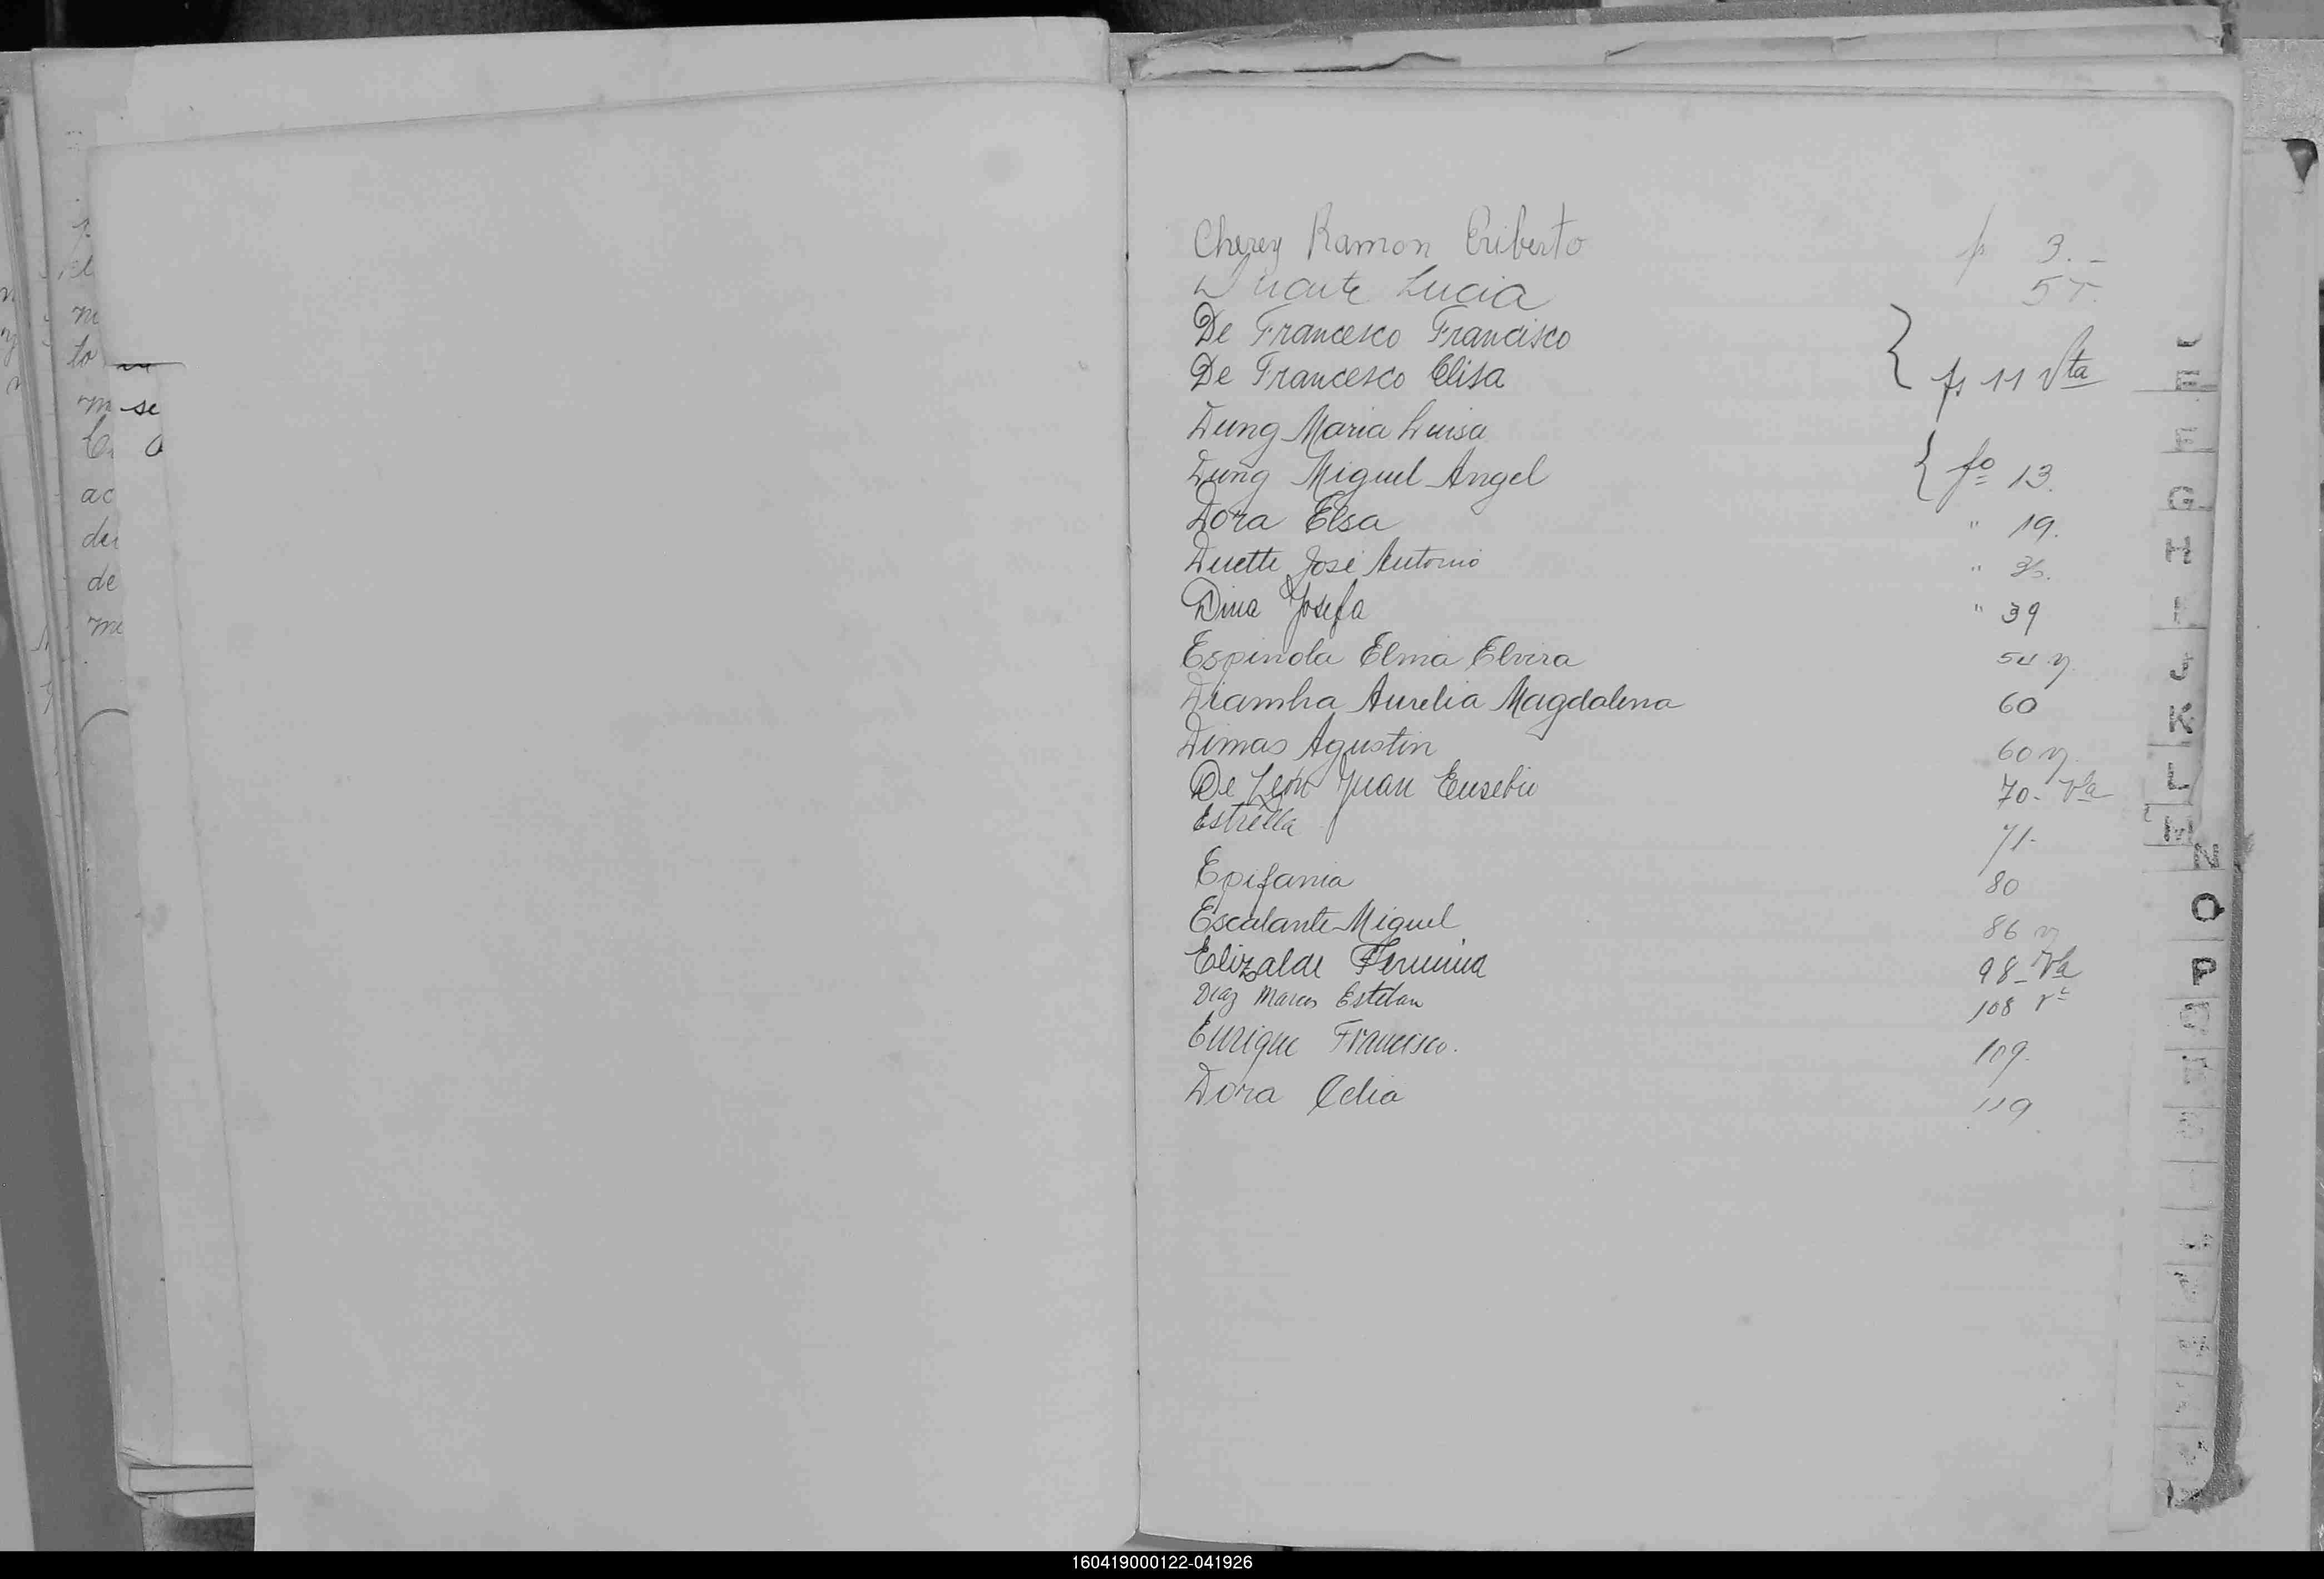 Cherey Ramon Eriberto fs 3.-
Duarte Lucia 5 v.
De Francesco Francisco
De Francesco Elisa } fs 11 Vta
Dung Maria Luisa
Dung Miguel Angel } fo 13.
Dora Elsa " 19.
Duette José Antonio "
Dina Josefa " 39
Espinola Elma Elvira 54 v.
Aurelia Magdalena 60
Dimas Agustin 60 v.
De León Juan Eusebio 70- Vta
Estrella 71.
Epifania 80
Escalante Miguel 86 v
Elizalde Fermina 98- Vta
Diaz Marcos Esteban 108 vta
Enrique Francisco. 109.
Dora Celia 119
E
F
G
H
I
J
K
L
M
N
O
P
160419000122-041926